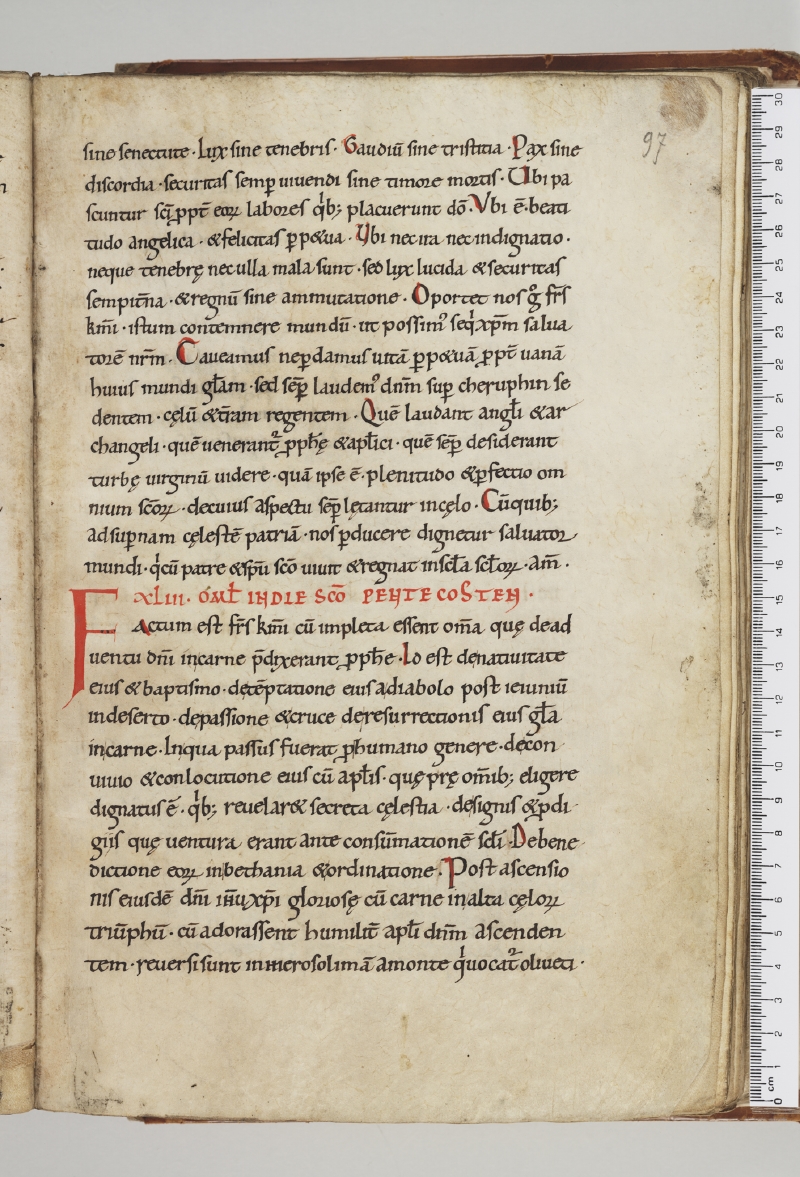 97
sine senectute · Lux sine tenebris · Gaudiū sine tristitia · Pax sine
discordia · securitas semp̄ uiuendi sine timore mortis · Ubi pa
scuntur sc̄i ꝓpt̄ eoꝝ labores qͥb; placuerunt dō · Vbi ē · beati
tudo angelica · & felicitas ꝑp&ua · Ubi nec ira nec indignatio ·
neque tenebrę nec ulla mala sunt · sed lux lucida & securitas
sempit̄na · & regnū sine ammutatione · Oportet nos gͦ fr̄s
km̄i · istum contemnere mundū · ut possim᾽ seqͥ xp̄m salua
torē nr̄m · Caueamus ne ꝑdamus uitā ꝑp&uā ꝓpt̄ uanā
huius mundi gl̄am · sed sēp laudem᾽ dn̄m sup̄ cheruphin se
dentem · cęlū & t̄ram regentem · Quē laudant angl̄i & ar
changeli · quē uenerant᷑ ꝓph̄ę & apl̄ici · quē sēp desiderant
turbę uirginū uidere · quā ipse ē · plenitudo & ꝑfectio om
nium sc̄oꝝ · de cuius aspectu sēp lętantur in cęlo · Cū quib;
ad sup̄nam cęlestē patriā · nos ꝑducere dignetur saluator
mundi · qͥ cū patre & sp̄u sc̄o uiuit & regnat in sc̄la sc̄loꝝ · Am̄ ·
xliii · om̄l IN DIE SC̄O PENTECOSTEN ·
FActum est fr̄s km̄i cū impleta essent om̄a quę de ad
uentu dn̄i in carne p̄dixerant ꝓph̄e · Id est de natiuitate
eius & baptismo · de tēptatione eius a diabolo post ieiuniū
in deserto · de passione & cruce de resurrectionis eius gl̄a
in carne · In qua passus fuerat ꝓ humano genere · de con
uiuio & conlocutione eius cū apl̄is · quę prę om̄ib; eligere
dignatus ē · qͥb; reuelar& secreta cęlestia · de signis & ꝓdi
giis quę uentura erant ante consūmationē scl̄i · De bene
dictione eoꝝ in bethania & ordinatione · Post ascensio
nis eiusdē dn̄i ih̄u xp̄i gloriosę cū carne in alta cęloꝝ
triūphū · cū adorassent humilit̄ apl̄i dn̄m ascenden
tem · reuersi sunt in ierosolimā a monte qͥ uocat᷑ oliueti ·